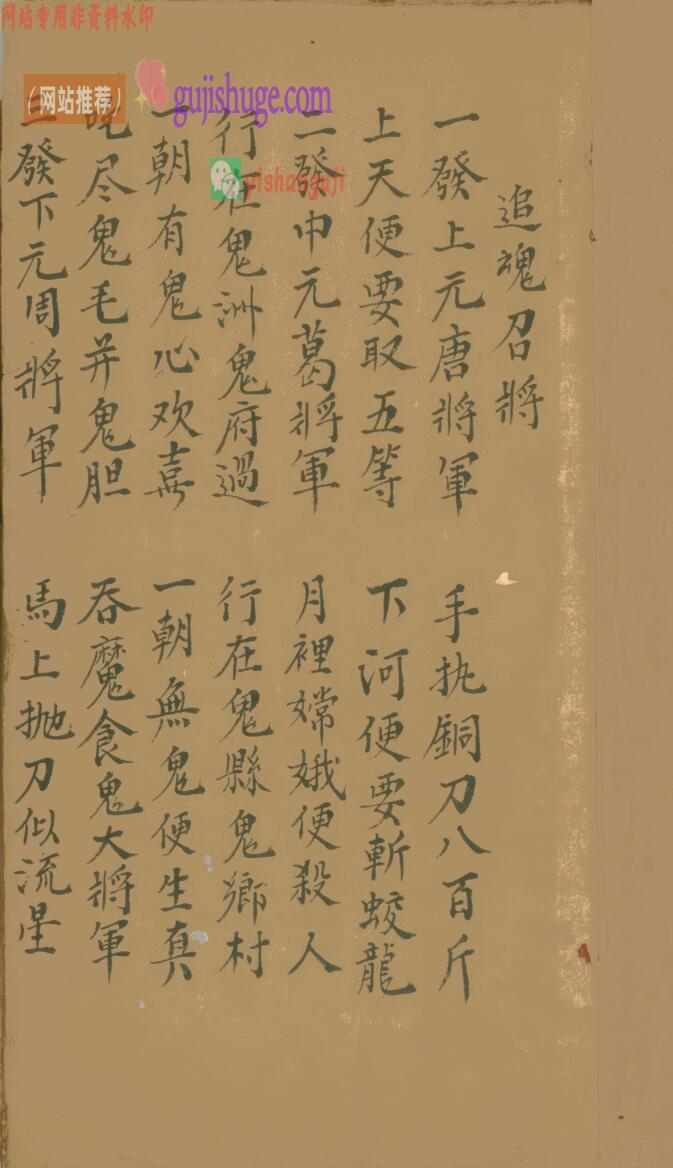 网站专用非资料水印
（网站推荐）
gujishuge.com
yishanguji
追魂召将
一發上元唐將軍　手执銅刀八百斤
上天便要取五等　下河便要斬蛟龍
二發中元葛將軍　月裡嫦娥便殺人
行在鬼洲鬼府過　行在鬼縣鬼鄉村
一朝有鬼心欢喜　一朝無鬼便生真
吃尽鬼毛并鬼胆　吞魔食鬼大將軍
三發下元周將軍　馬上抛刀似流星